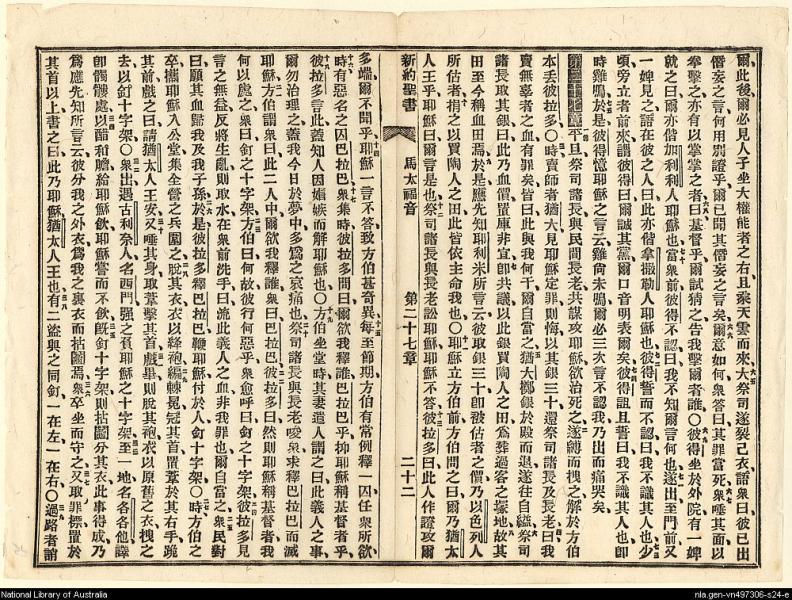 爾此後爾必見人子坐大權能者之右且乘天雲而來大祭司遂裂己衣語衆曰彼已出
僭妄之言何用別證乎爾已聞其僭妄之言矣爾意如何衆答曰其罪當死衆唾其面以
拳擊之亦有以掌擊之者曰基督乎爾試猜之告我擊爾者誰○彼得坐於外院有一婢
就之曰爾亦偕加利利人耶穌也當衆前彼得不認曰我不知爾言何也遂出至門前又
一婢見之語在彼之人曰此亦偕拿撒勒人耶穌也彼得誓而不認曰我不識其人也少
頃旁立者前來謂彼得曰爾誠其黨爾口音明表爾矣彼得詛且誓曰我不識其人也卽
時雞鳴於是彼得憶耶穌之言云雞尚未鳴爾必三次言不認我乃出而痛哭矣
第二十七章平旦祭司諸長與民間長老共謀攻耶穌欲治死之遂縛而拽之解於方伯
本丟彼拉多○時賣師者猶大見耶穌定罪則悔以其銀三十還祭司諸長及長老曰我
賣無辜者之血有罪矣皆曰此與我何干爾自當之猶大擲銀於殿而退遂往自縊祭司
諸長取其銀曰此乃血價置庫非宜卽共議以此銀買陶人之田爲葬過客之塚地故其
田至今稱血田焉於是應先知耶利米所言云彼取銀三十卽被估者之價乃以色列人
所估者捐之以買陶人之田此皆依主命我也○耶穌立方伯前方伯問之曰爾乃猶太
人王乎耶穌曰爾言是也祭司諸長與長老訟耶穌耶穌不答彼拉多曰此人作證攻爾
新約聖書 馬太福音 第二十七章 二十二
多端爾不聞乎耶穌一言不答致方伯甚奇異每至節期方伯有常例釋一囚任衆所欲
時有惡名之囚巴拉巴衆集時彼拉多問曰爾欲我釋誰巴拉巴乎抑耶穌稱基督者乎
彼拉多言此蓋知人因媢嫉而解耶穌也○方伯坐堂時其妻遣人謂之曰此義人之事
爾勿治理之蓋我今日於夢中多爲之哀痛也祭司諸長與長老唆衆求釋巴拉巴而滅
耶穌方伯謂衆曰此二人中爾欲我釋誰衆曰巴拉巴彼拉多曰然則耶穌稱基督者我
何以處之衆曰釘之十字架方伯曰何故彼行何惡乎衆愈呼曰釘之十字架彼拉多見
言之無益反將生亂則取水在衆前洗手曰流此義人之血非我罪也爾自當之衆民對
曰願其血歸我及我子孫於是彼拉多釋巴拉巴鞭耶穌付於人釘十字架○時方伯之
卒攜耶穌入公堂集全營之兵圍之脫其衣衣以絳袍編棘冕冠其首置葦於其右手跪
其前戲之曰請猶太人王安又唾其身取葦擊其首戲畢則脫其袍衣以原舊之衣拽之
去以釘十字架○衆出遇古利奈人名西門強之負耶穌之十字架至一地名各各他譯
卽髑髏處以醋和膽給耶穌飲耶穌嘗而不飲旣釘十字架則拈鬮分其衣此事得成乃
爲應先知所言云彼分我之外衣爲我之裏衣而拈鬮焉衆卒坐而守之又取罪標置於
其首以上書之曰此乃耶穌猶太人王也有二盜與之同釘一在左一在右○過路者誚
National Library of Australia
nla.gen-vn497306-s24-e